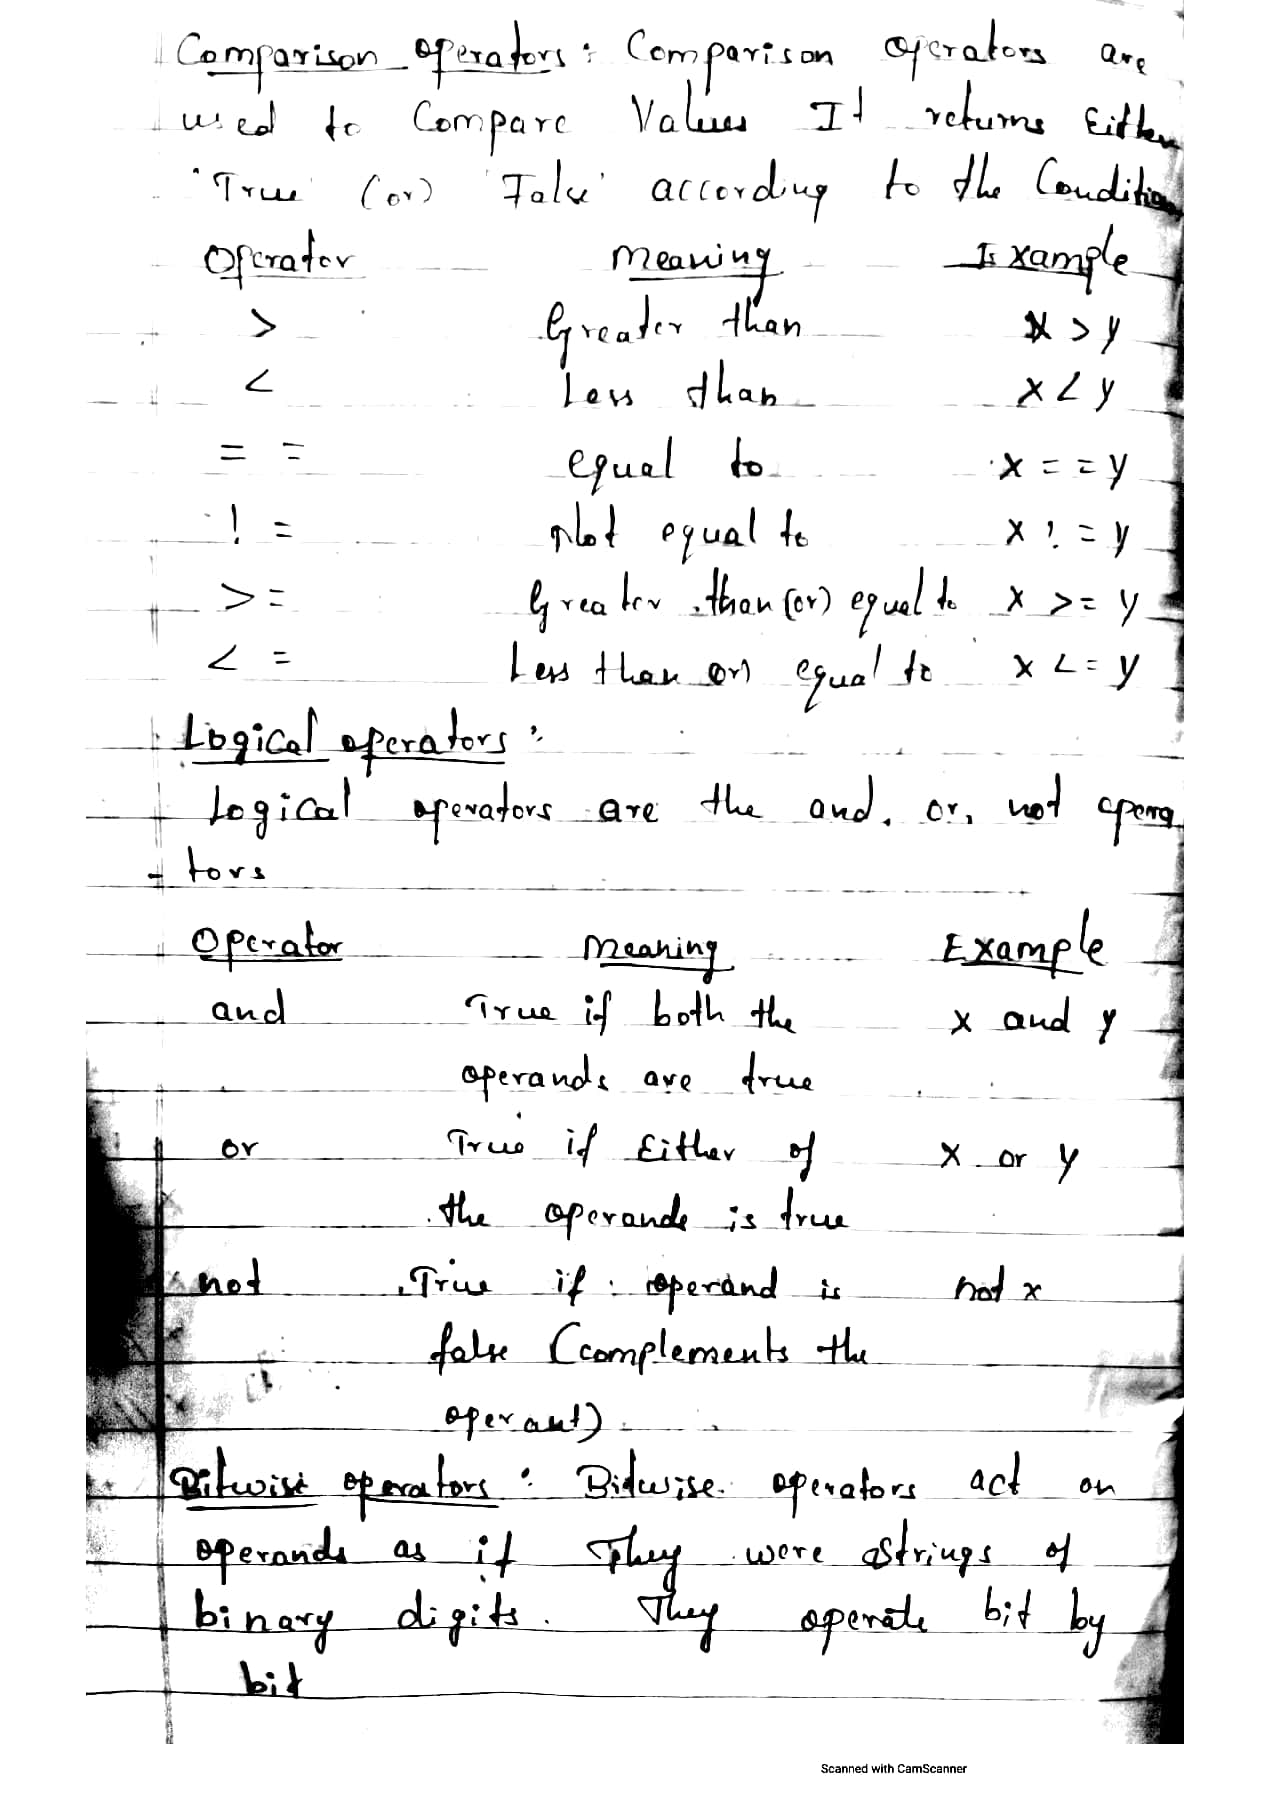 Comparison operators : Comparison operators are
used to Compare Values It returns Either
'True' (or) 'False' according to the Condition
Operator Meaning Example
> Greater than x > y
< Less than x < y
= = equal to x = = y
! = Not equal to x ! = y
> = Greater than (or) equal to x > = y
< = Less than or) equal to x < = y
Logical operators :
Logical operators are the and, or, not opera
tors
Operator Meaning Example
and True if both the x and y
operands are true
or True if Either of x or y
the operands is true
not True if operand is not x
false (complements the
operant)
Bitwise operators : Bitwise operators act on
operands as if They were strings of
binary digits. They operate bit by
bit
Scanned with CamScanner